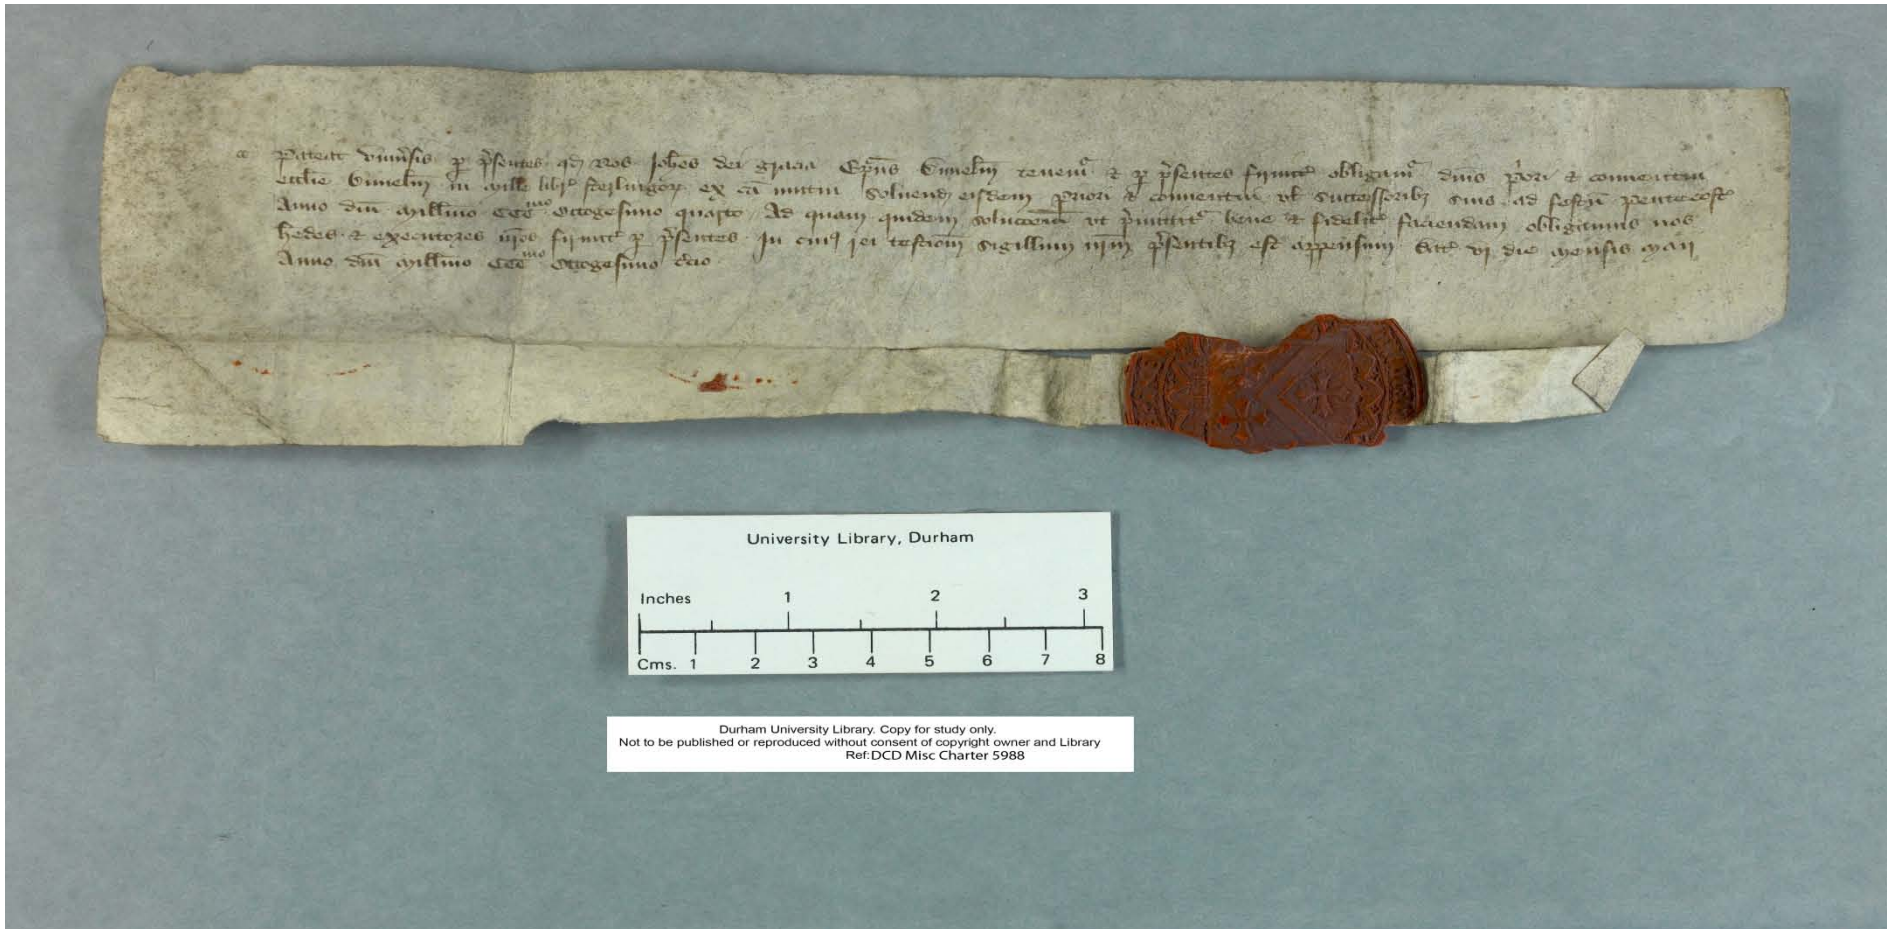 Pateat univ͛sis p̱ p͛sentes qd̛ nos Joħes dei gracia Ep̄us Dunelm̄ tenem᷒ & p̱ p͛sentes firmit͛ obligam᷒ dn̄is p͛ori & conventui
eccl̄ie Dunelm̄ in mille libr͛ sterlingoꝝ ex cā mutui Solvend̛ eisdem Priori & conventui vł Successoribꝫ suis ad festū Pentecost͛
Anno dn̄i Mill̄mo CCCmo Octogesimo quarto Ad quam quidem soluccōem ut p͛mittit᷒ bene & fidelit͛ faciendam obligamus nos
hedes & executores nr̄os firmit͛ p̱ p͛sentes In cuiꝰ rei testiōm Sigillum nr̄m p͛sentibꝫ est appensum Dat͛ vj die mensis Maii
Anno dn̄i Mill̄mo CCCmo Octogesimo t͛cio
University Library, Durham
Inches 1 2 3
Cms. 1 2 3 4 5 6 7 8
Durham University Library. Copy for study only.
Not to be published or reproduced without consent of copyright owner and Library
Ref: DCD Misc Charter 5988